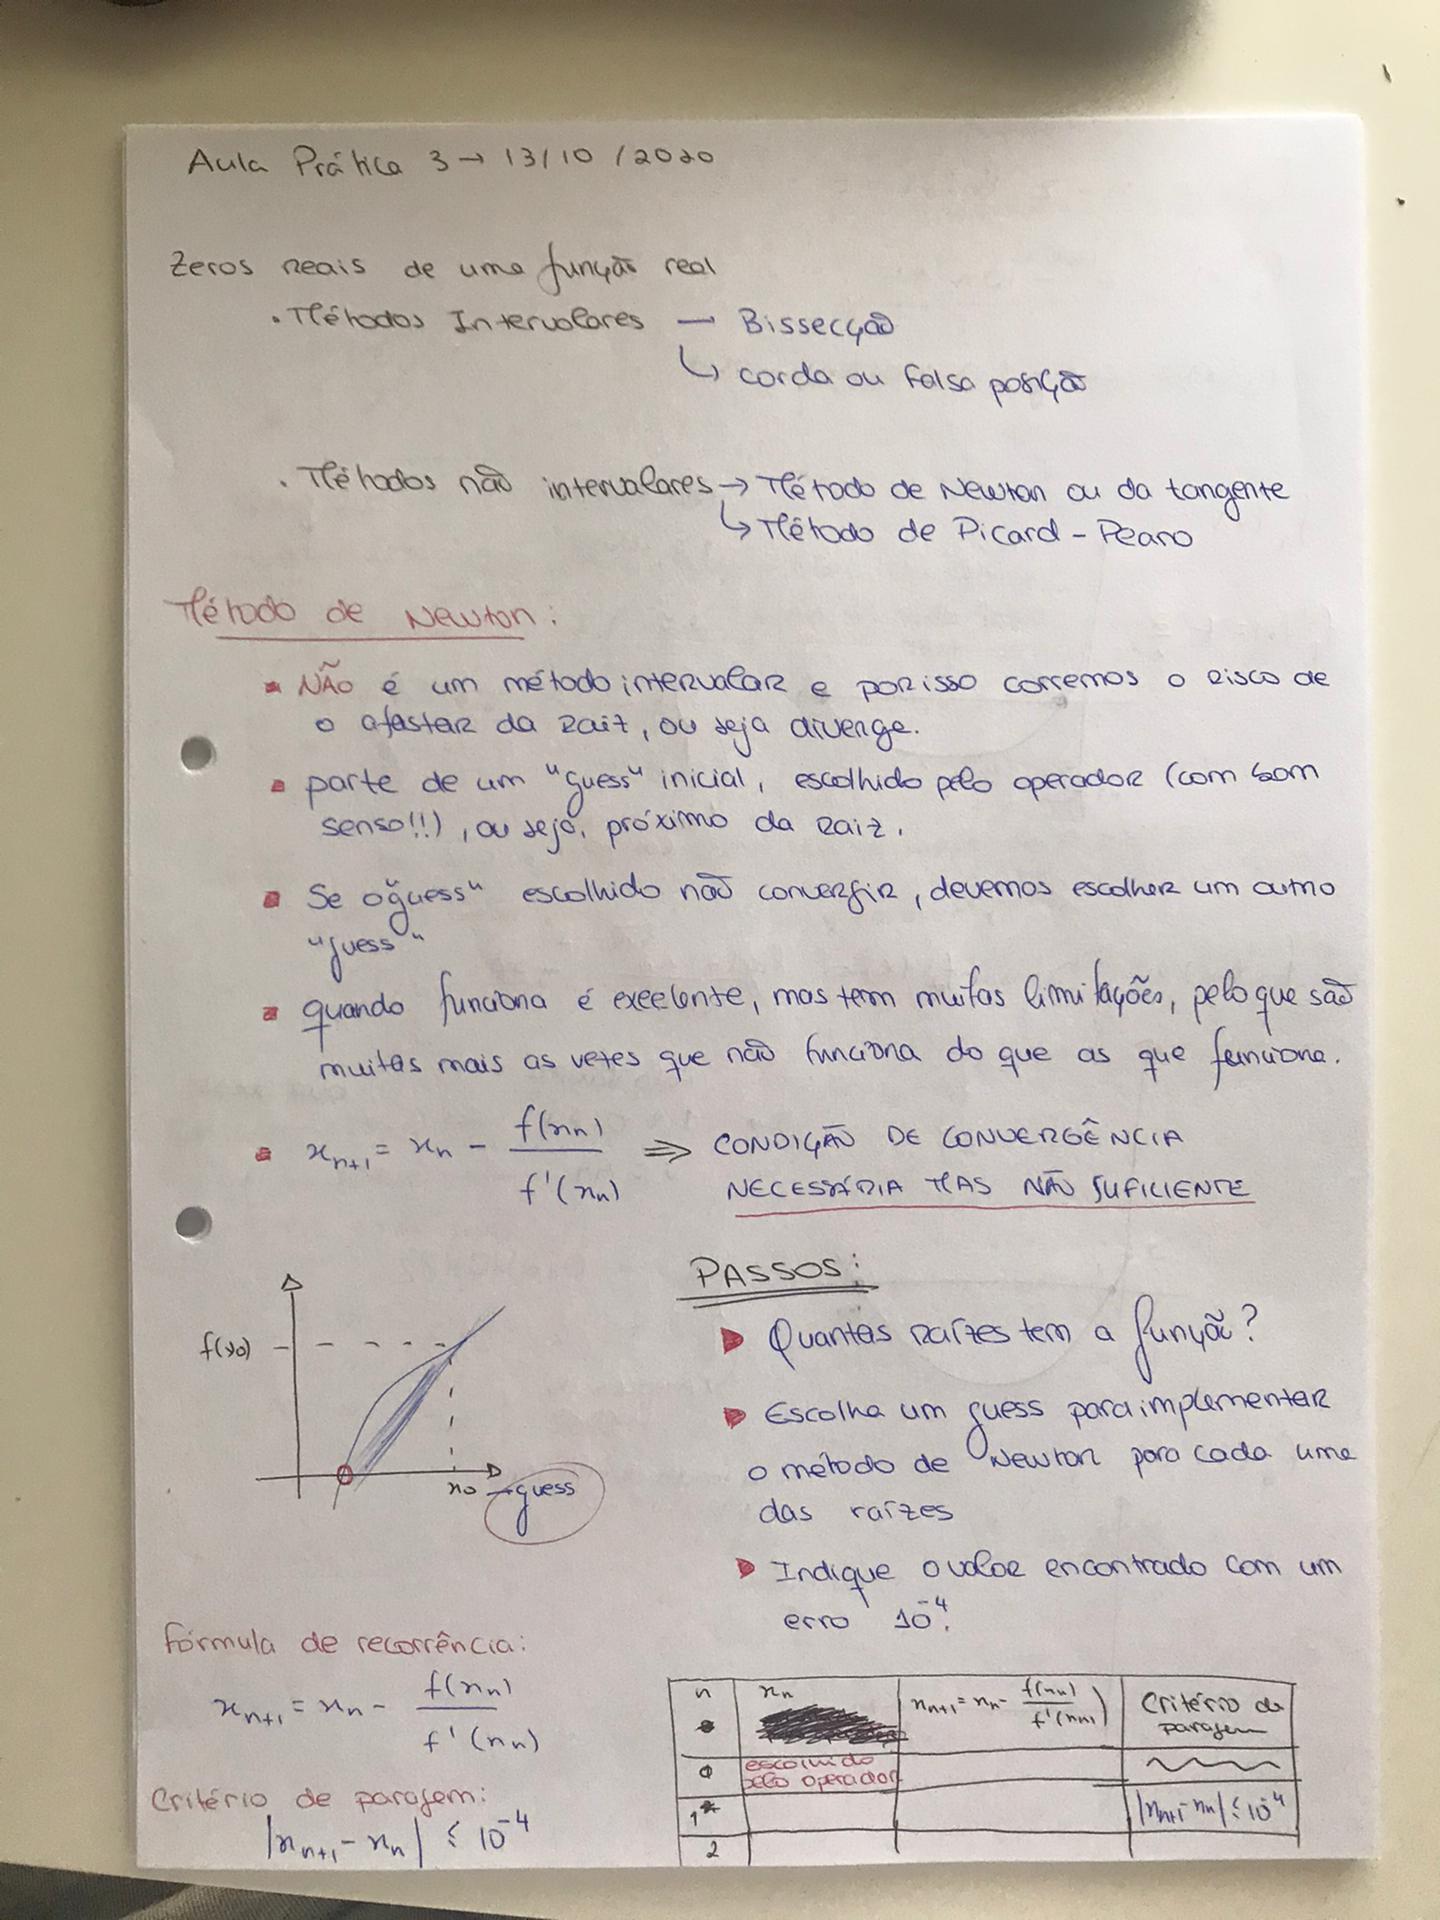 Aula Prática 3 → 13/10/2020
Zeros reais de uma função real
• Métodos Intervalares — Bissecção
↳ corda ou falsa posição
• Métodos não intervalares → Método de Newton ou da tangente
↳ Método de Picard - Peano
Método de Newton:
▪ NÃO é um método intervalar e por isso corremos o risco de
o afastar da raiz, ou seja diverge.
▪ parte de um "guess" inicial, escolhido pelo operador (com bom
senso!!), ou seja, próximo da raiz.
▪ Se o "guess" escolhido não convergir, devemos escolher um outro
"guess"
▪ quando funciona é execelente, mas tem muitas limitações, pelo que são
muitas mais as vezes que não funciona do que as que funciona.
▪ x_{n+1} = x_n - f(x_n) / f'(x_n) ⇒ CONDIÇÃO DE CONVERGÊNCIA
NECESSÁRIA MAS NÃO SUFICIENTE
PASSOS:
▶ Quantas raízes tem a função?
▶ Escolha um guess para implementar
o método de Newton para cada uma
das raízes
▶ Indique o valor encontrado com um
erro 10^-4.
f(x0)
x0 → guess
Fórmula de recorrência:
x_{n+1} = x_n - f(x_n) / f'(x_n)
Critério de paragem:
|x_{n+1} - x_n| ≤ 10^-4
n x_n x_{n+1} = x_n - f(x_n) / f'(x_n) Critério de
paragem
0 escolhido
pelo operador
1* |x_{n+1} - x_n| ≤ 10^-4
2